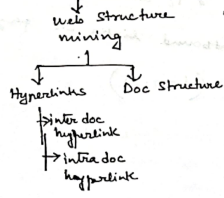 Web Structure
mining
Hyperlinks Doc Structure
inter doc
hyperlink
intra doc
hayparlink